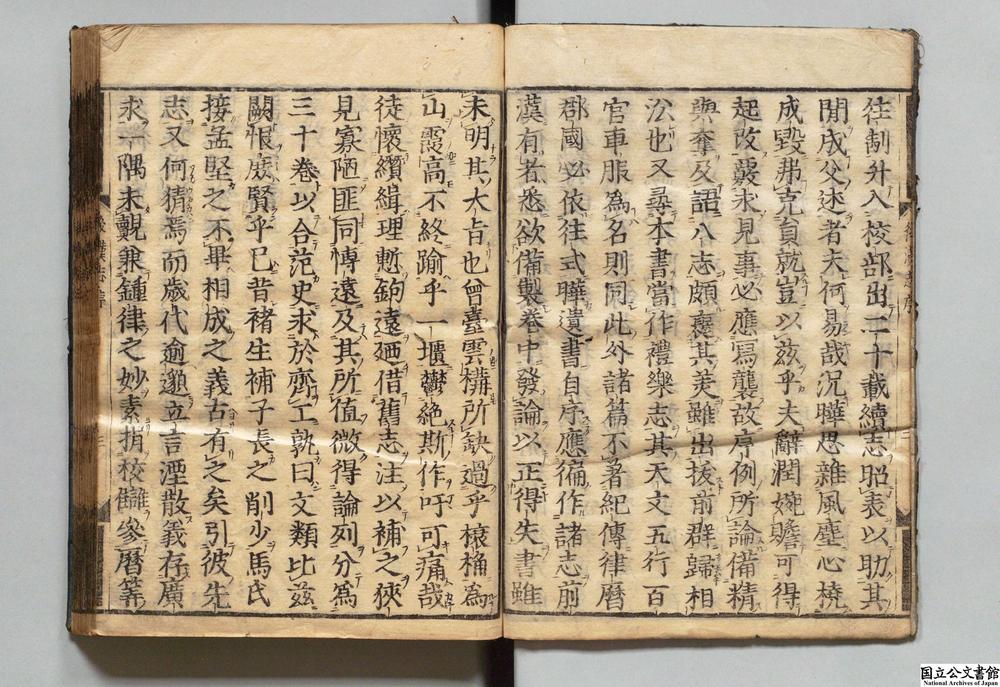 往制升入校部出二十載續志昭表以助其
間成父述者夫何易哉況曄思雜風塵心橈
成毀弗克員就豈以茲乎夫辭潤婉贍可得
起改覈求見事必應寫襲故序例所論備精
與奪及語八志頗褒其美雖出拔前群歸相
沿也又尋本書當作禮樂志其天文五行百
官車服為名則同此外諸篇不著紀傳律曆
郡國必依往式曄遺書自序應徧作諸志前
漢有者悉欲備製卷中發論以正得失書雖
未明其大旨也曾臺雲構所缺過乎榱桷為
山霞高不終踰乎一壥鬱絕斯作吁可痛哉
徒懷纘緝理慙鉤遠廼借舊志注以補之狹
見寡陋匪同博遠及其所值微得論列分為
三十卷以合范史求於齊工孰曰文類比茲
闕恨庶賢乎已昔褚生補子長之削少馬氏
接孟堅之不畢相成之義古有之矣引彼先
志又何猜焉而歲代逾邈立言湮散義存廣
求一隅未覿兼鍾律之妙素揖校讎參曆筭
後漢志序
國立公文書館
National Archives of Japan